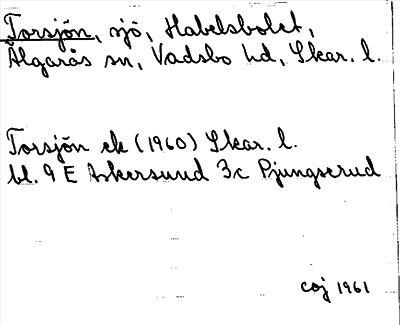 Torsjön, sjö, Habelsbolet,
Älgarås sn, Vadsbo hd, Skar. l.
Torsjön ek (1960) Skar. l.
bl. 9 E Askersund 3c Pjungserud
coj 1961